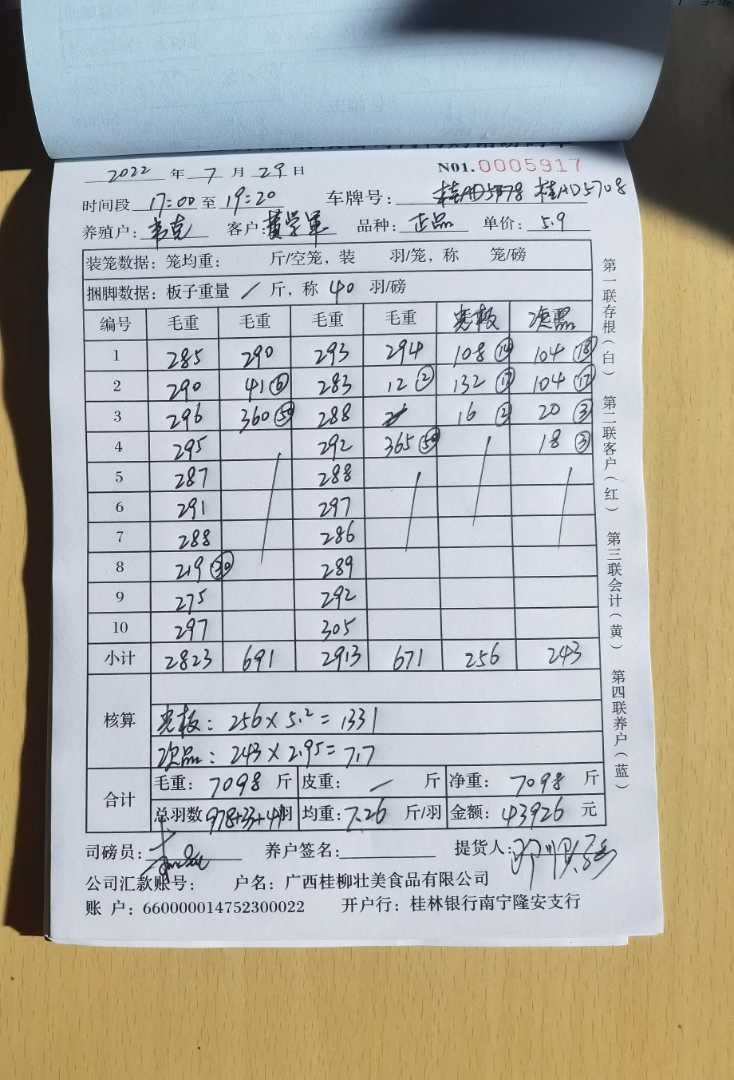 2022 年 7 月 29 日 N01.0005917
时间段 17:00 至 19:20 车牌号: 桂AD5778 桂AD5708
养殖户: 韦克 客户: 黄学军 品种: 正品 单价: 5.9
装笼数据: 笼均重: 斤/空笼, 装 羽/笼, 称 笼/磅
捆脚数据: 板子重量 / 斤, 称 40 羽/磅
编号 毛重 毛重 毛重 毛重 光板 次品
1 285 290 293 294 108⑭ 104⑱
2 290 41⑥ 283 12② 132⑰ 104⑰
3 296 360㊿ 288 16② 20③
4 295 292 365㊿ 18③
5 287 288
6 291 297
7 288 286
8 219㉚ 289
9 275 292
10 297 305
小计 2823 691 2913 671 256 243
核算
光板: 256×5.2=1331
次品: 243×2.95=717
合计
毛重: 7098 斤 皮重: / 斤 净重: 7098 斤
总羽数 978+33+41羽 均重: 7.26 斤/羽 金额: 43926 元
司磅员: 养户签名: 提货人:
公司汇款账号: 户名: 广西桂柳壮美食品有限公司
账 户: 660000014752300022 开户行: 桂林银行南宁隆安支行
第一联存根(白) 第二联客户(红) 第三联会计(黄) 第四联养户(蓝)